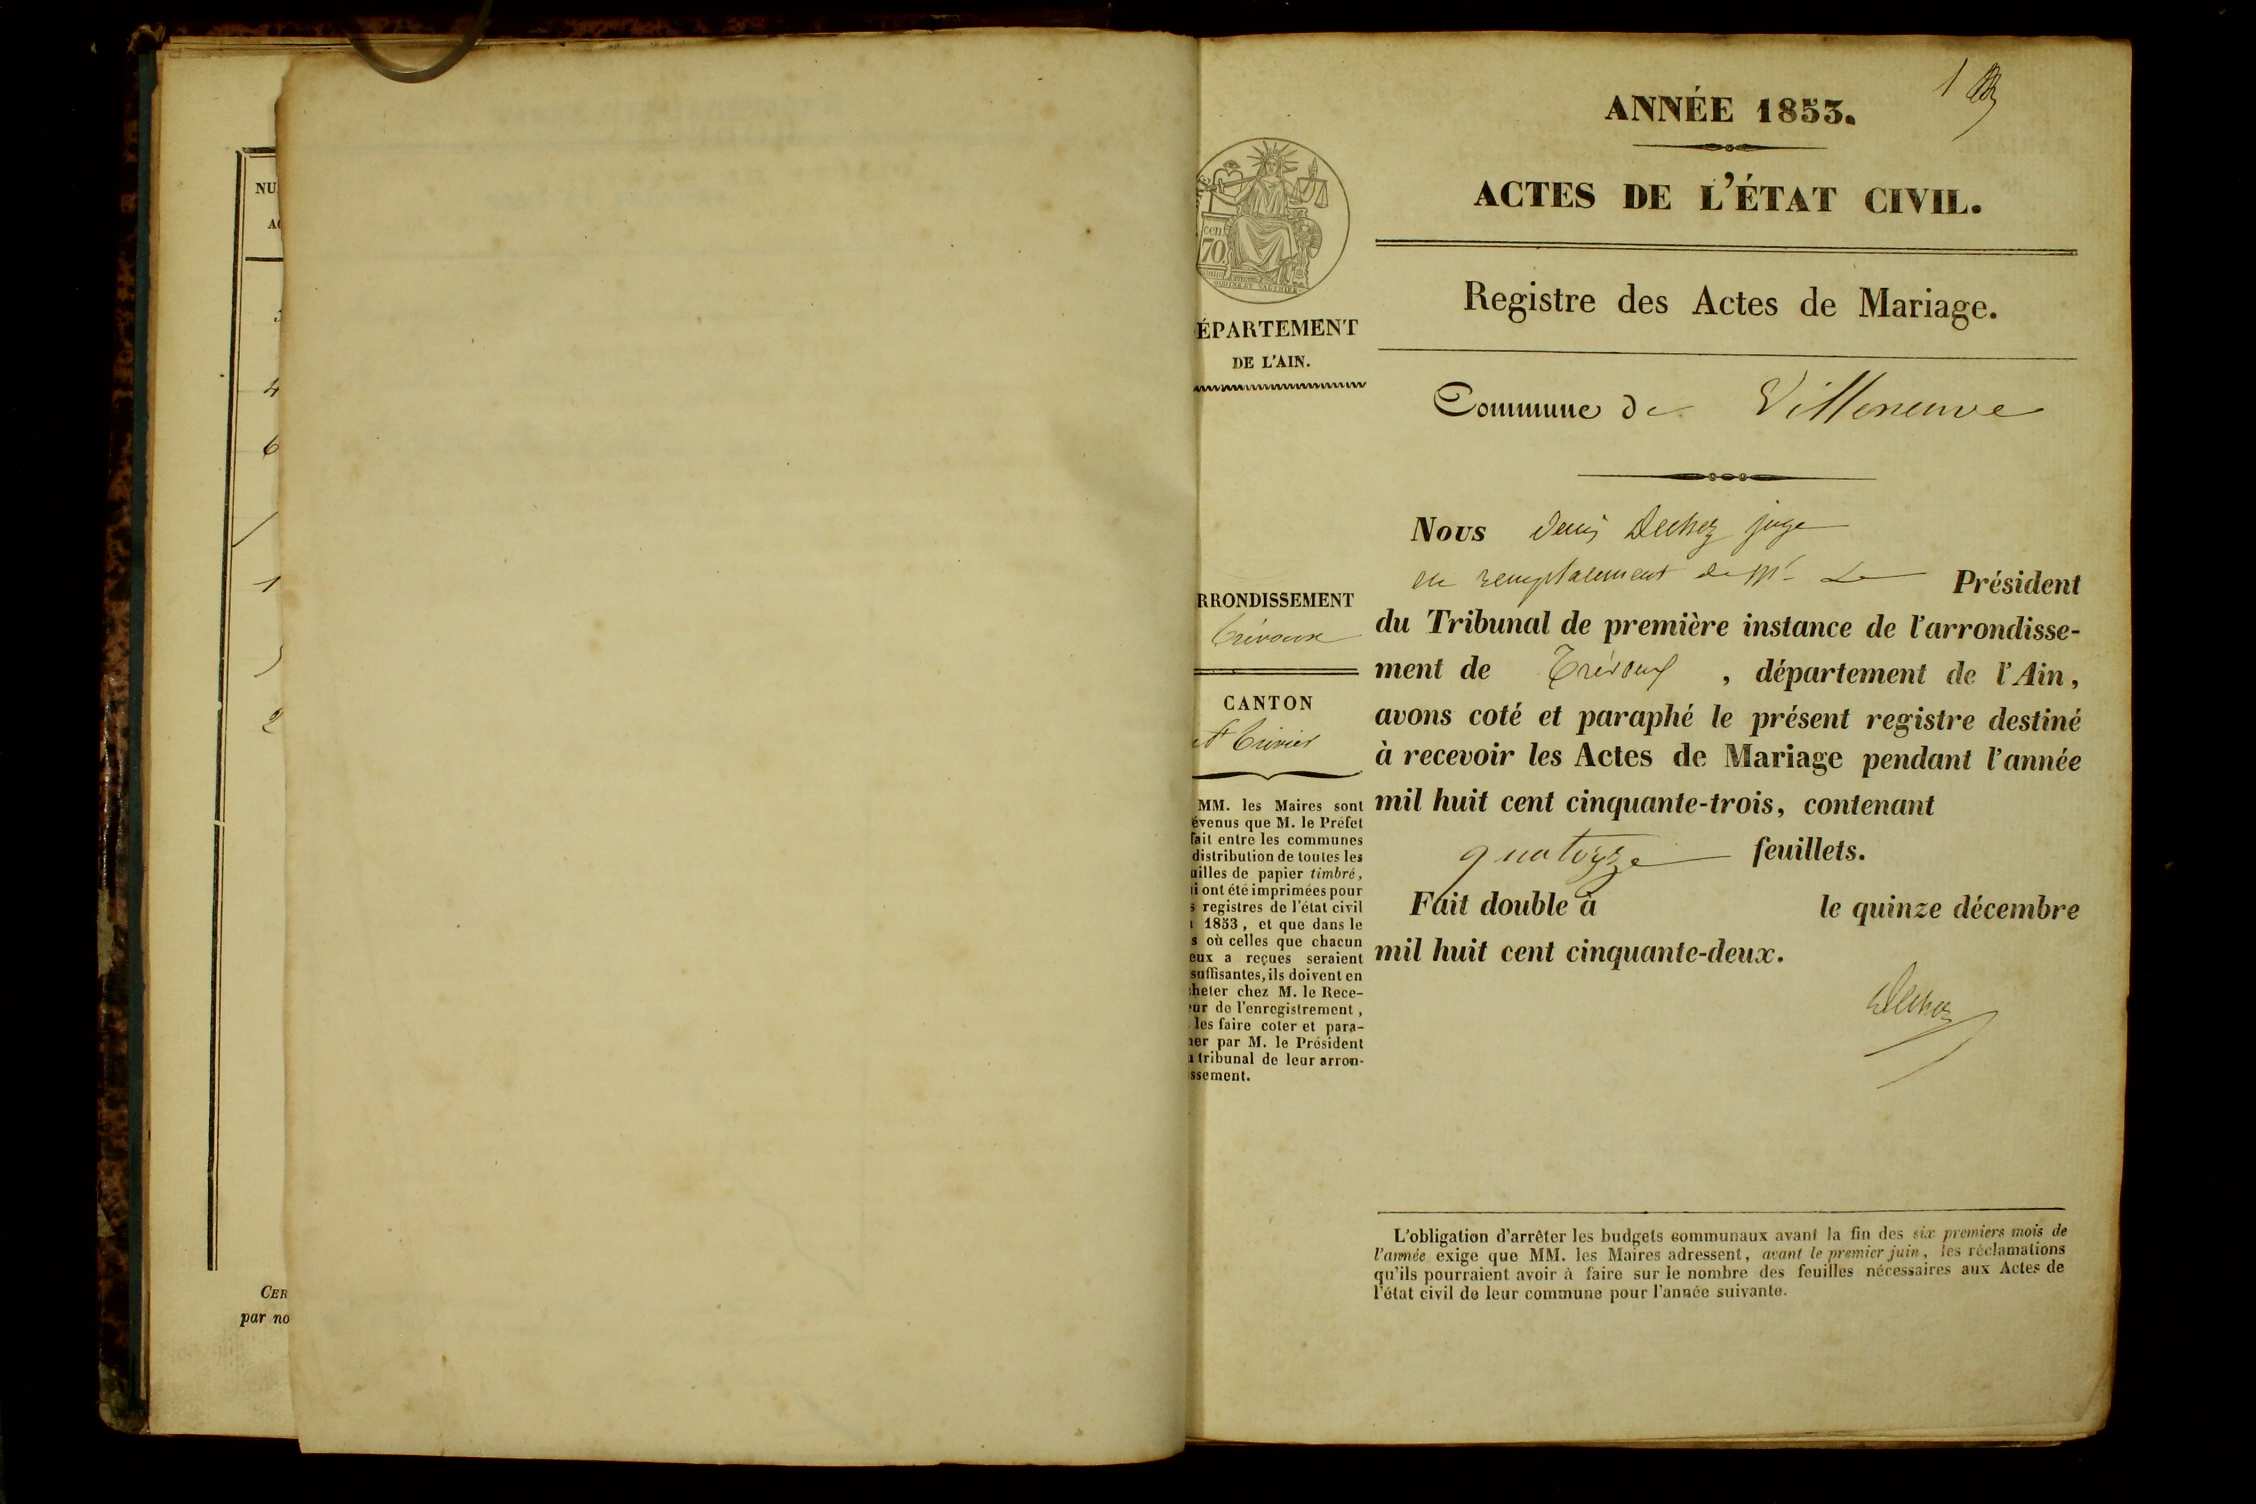 NU
AC
4
6
1
2
CER
par no
1
ANNÉE 1853.
ACTES DE L'ÉTAT CIVIL.
Registre des Actes de Mariage.
cen.
70
ÉPARTEMENT
DE L'AIN.
RRONDISSEMENT
Trévoux
CANTON
St Trivier
MM. les Maires sont
évenus que M. le Préfet
fait entre les communes
distribution de toutes les
uilles de papier timbré,
i ont été imprimées pour
s registres de l'état civil
1853, et que dans le
s où celles que chacun
eux a reçues seraient
suffisantes, ils doivent en
cheter chez M. le Rece-
eur de l'enregistrement,
les faire coter et para-
her par M. le Président
u tribunal de leur arron-
ssement.
Commune de Villeneuve
Nous Denis Dechez juge
en remplacement de Mr Le Président
du Tribunal de première instance de l'arrondisse-
ment de Trévoux, département de l'Ain,
avons coté et paraphé le présent registre destiné
à recevoir les Actes de Mariage pendant l'année
mil huit cent cinquante-trois, contenant
quatorze feuillets.
Fait double à le quinze décembre
mil huit cent cinquante-deux.
Dechez
L'obligation d'arrêter les budgets communaux avant la fin des six premiers mois de
l'année exige que MM. les Maires adressent, avant le premier juin, les réclamations
qu'ils pourraient avoir à faire sur le nombre des feuilles nécessaires aux Actes de
l'état civil de leur commune pour l'année suivante.